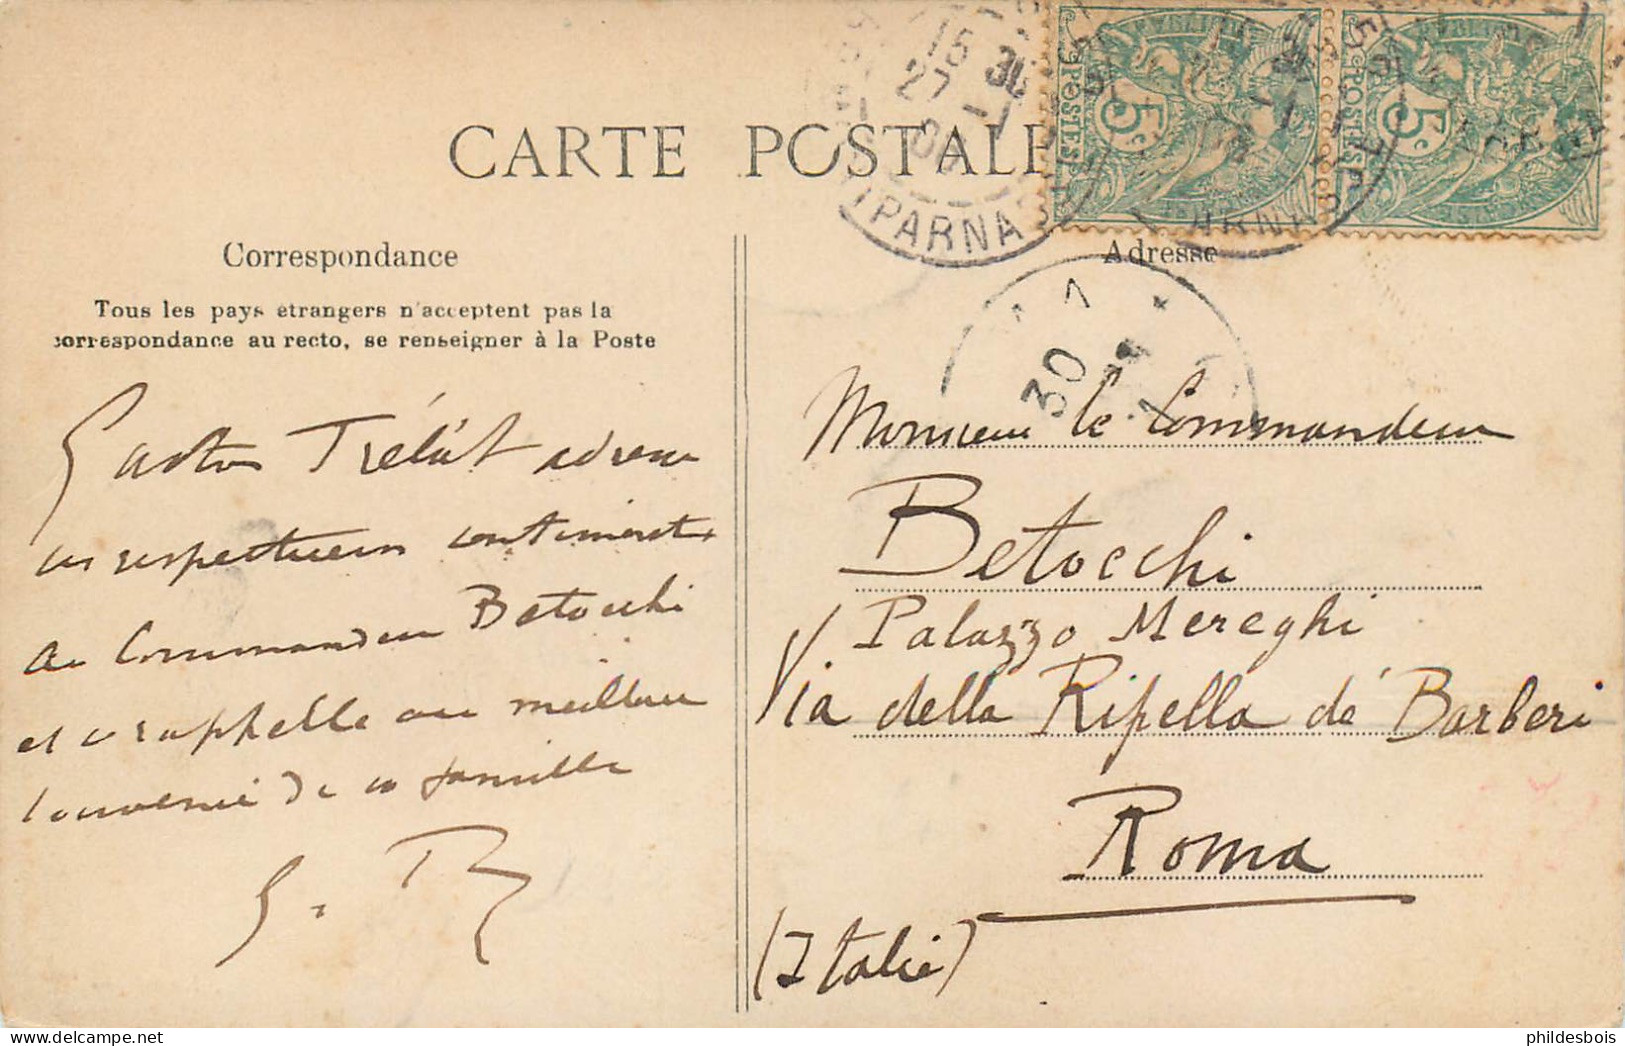 CARTE POSTALE
Correspondance
Tous les pays étrangers n'acceptent pas la
correspondance au recto, se renseigner à la Poste
Gaston Trélat adresse
ses respectueux sentiments
au Commandeur Betocchi
et se rappelle au meilleur
souvenir de sa famille
G. T.
Adresse
Monsieur le Commandeur
Betocchi
Palazzo Mereghi
Via della Ripella de Barberi
Roma
(Italie)
15 30
27 - 1
PARNAS
POSTES
5c
POSTES
5c
ARNAS
30
phildesbois